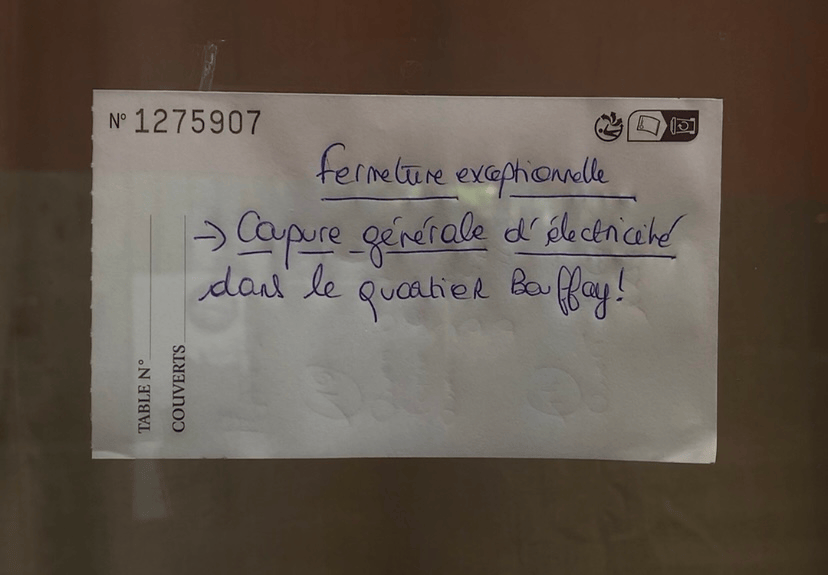 N° 1275907
Fermeture exceptionnelle
→ Coupure générale d'électricité
dans le quartier Bouffay!
TABLE N°
COUVERTS